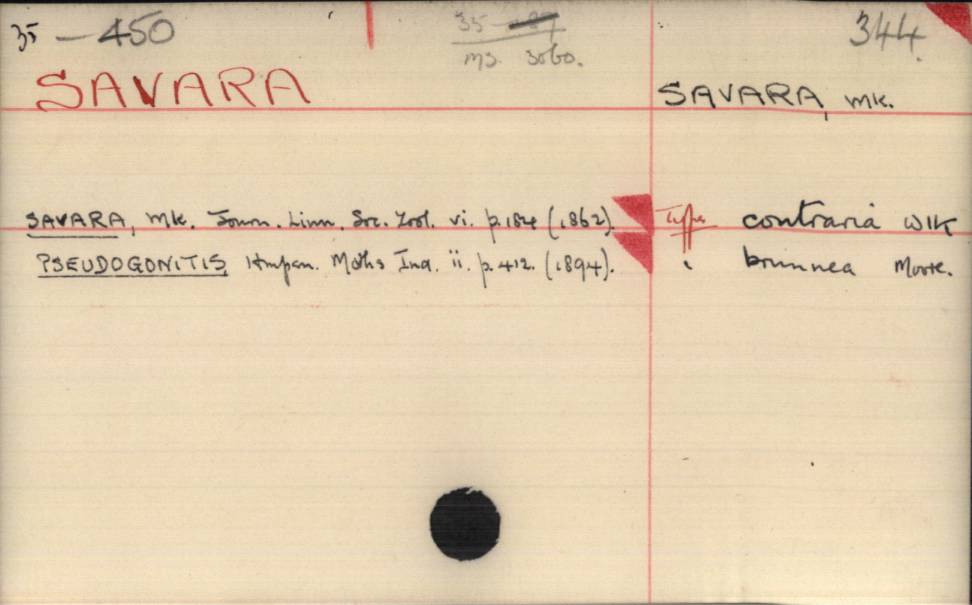 35 — 450
35 — 
ms. 3060.
344.
SAVARA
SAVARA, Wlk.
SAVARA, Wlk. Journ. Linn. Soc. Zool. vi. p. 184 (1862). Type contraria Wlk
PSEUDOGONITIS Hmpsn. Moths Ind. ii. p. 412. (1894). " brunnea Moore.